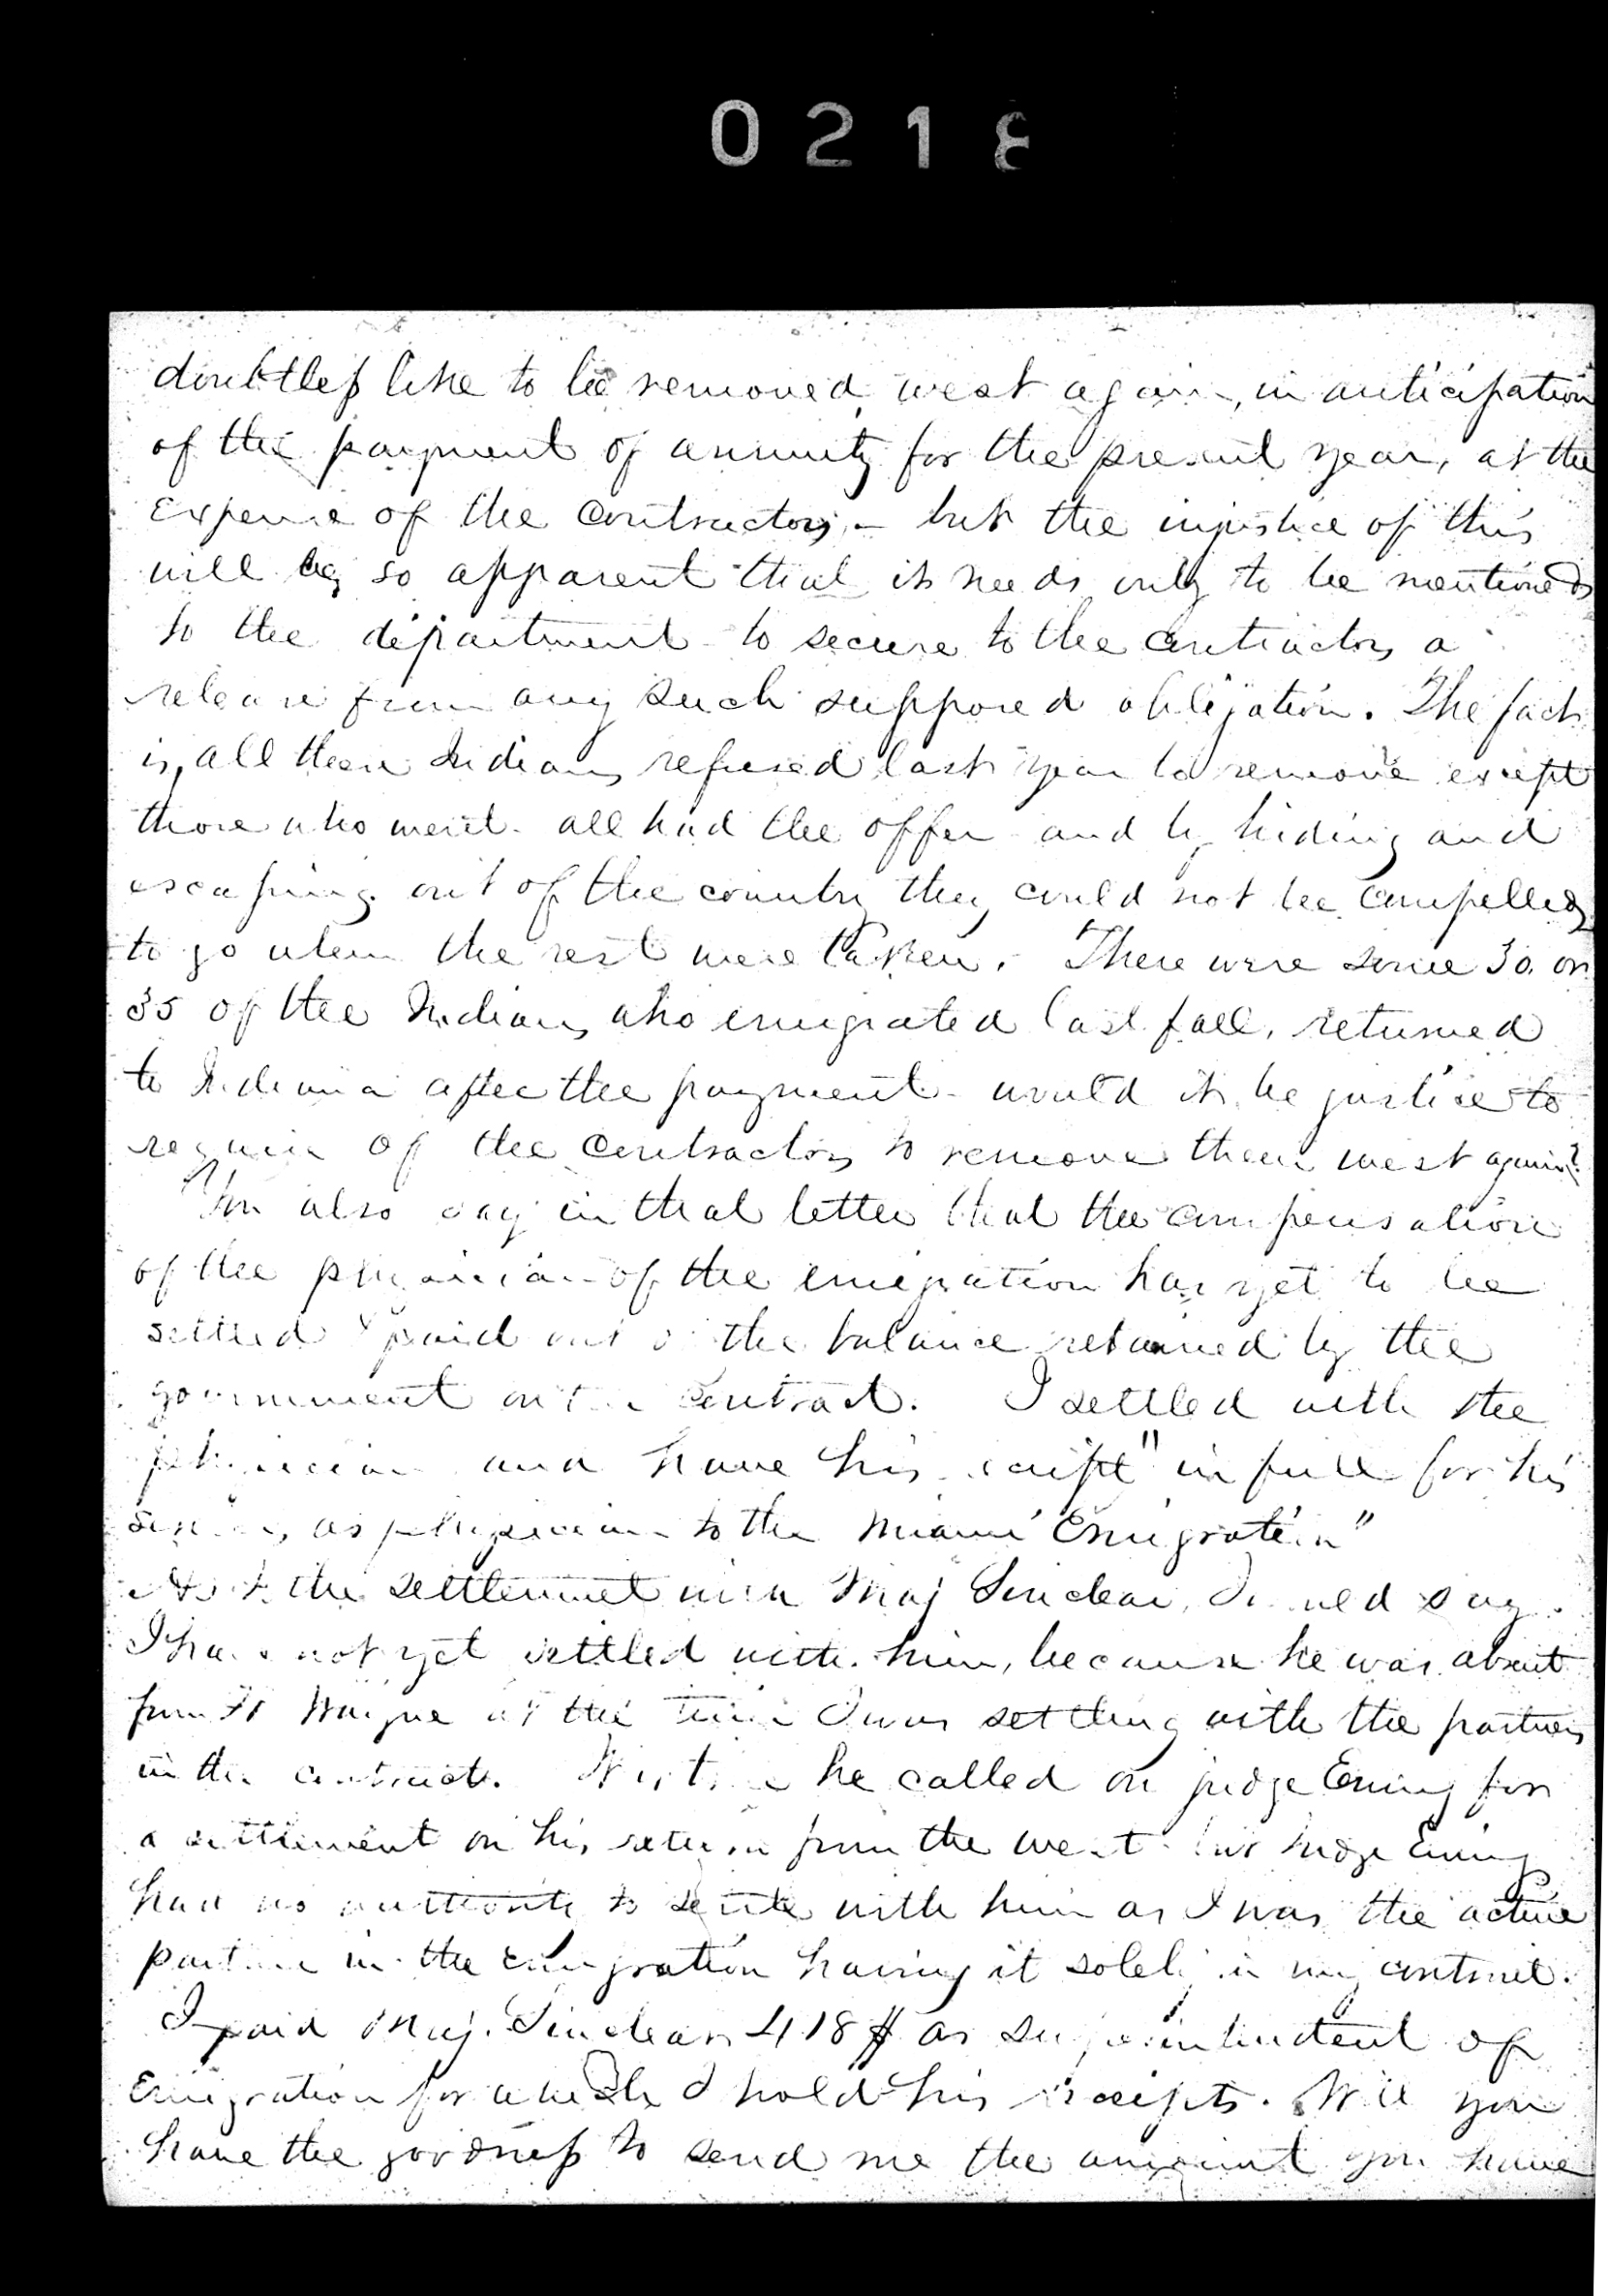 0218
doubtless like to be removed west again, in anticipation
of the payment of annuity for the present year, at the
expense of the contractors, - but the injustice of this
will be so apparent that it needs only to be mentioned
to the department to secure to the contractors a
release from any such supposed obligation. The fact
is, all these Indians refused last year to remove except
those who went. all had the offer and by hiding and
escaping out of the country they could not be compelled
to go when the rest were taken. There were some 30 or
35 of the Indians who emigrated last fall, returned
to Indiana after the payment - would it be justice to
require of the contractors to remove them west again?
You also say in that letter that the compensation
of the physician of the emigration has yet to be
settled & paid out of the balance retained by the
government on the contract. I settled with the
physician and have his receipt "in full for his
services as physician to the Miami Emigration"
As to the settlement with Maj Sinclear, I would say
I have not yet settled with him, because he was absent
from Ft Wayne at the time I was settling with the partners
in the contract. he called on judge Ewing for
a settlement on his return from the west but judge Ewing
had no authority to settle with him as I was the active
partner in the emigration having it solely in my control.
I paid Maj. Sinclear 418$ as superintendent of
Emigration for which I hold his receipts. Will you
have the goodness to send me the amount you have